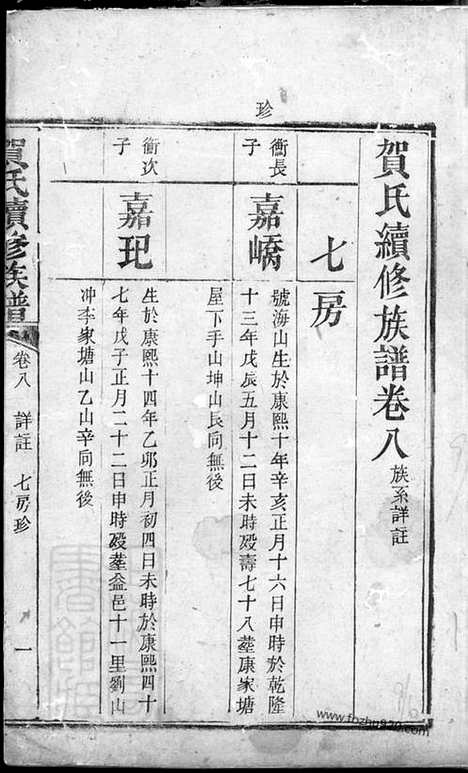 珍
賀氏續修族譜卷八 族系詳註
七房
衡長子
嘉嶠
號海山生於康熙十年辛亥正月十六日申時於乾隆
十三年戊辰五月十二日未時殁壽七十八塟康家塘
屋下手山坤山艮向無後
衡次子
嘉玘
生於康熙十四年乙卯正月初四日未時於康熙四十
七年戊子正月二十二日申時殁塟益邑十一里劉山
冲李家塘山乙山辛向無後
賀氏續修族譜
卷八 詳註 七房珍
一